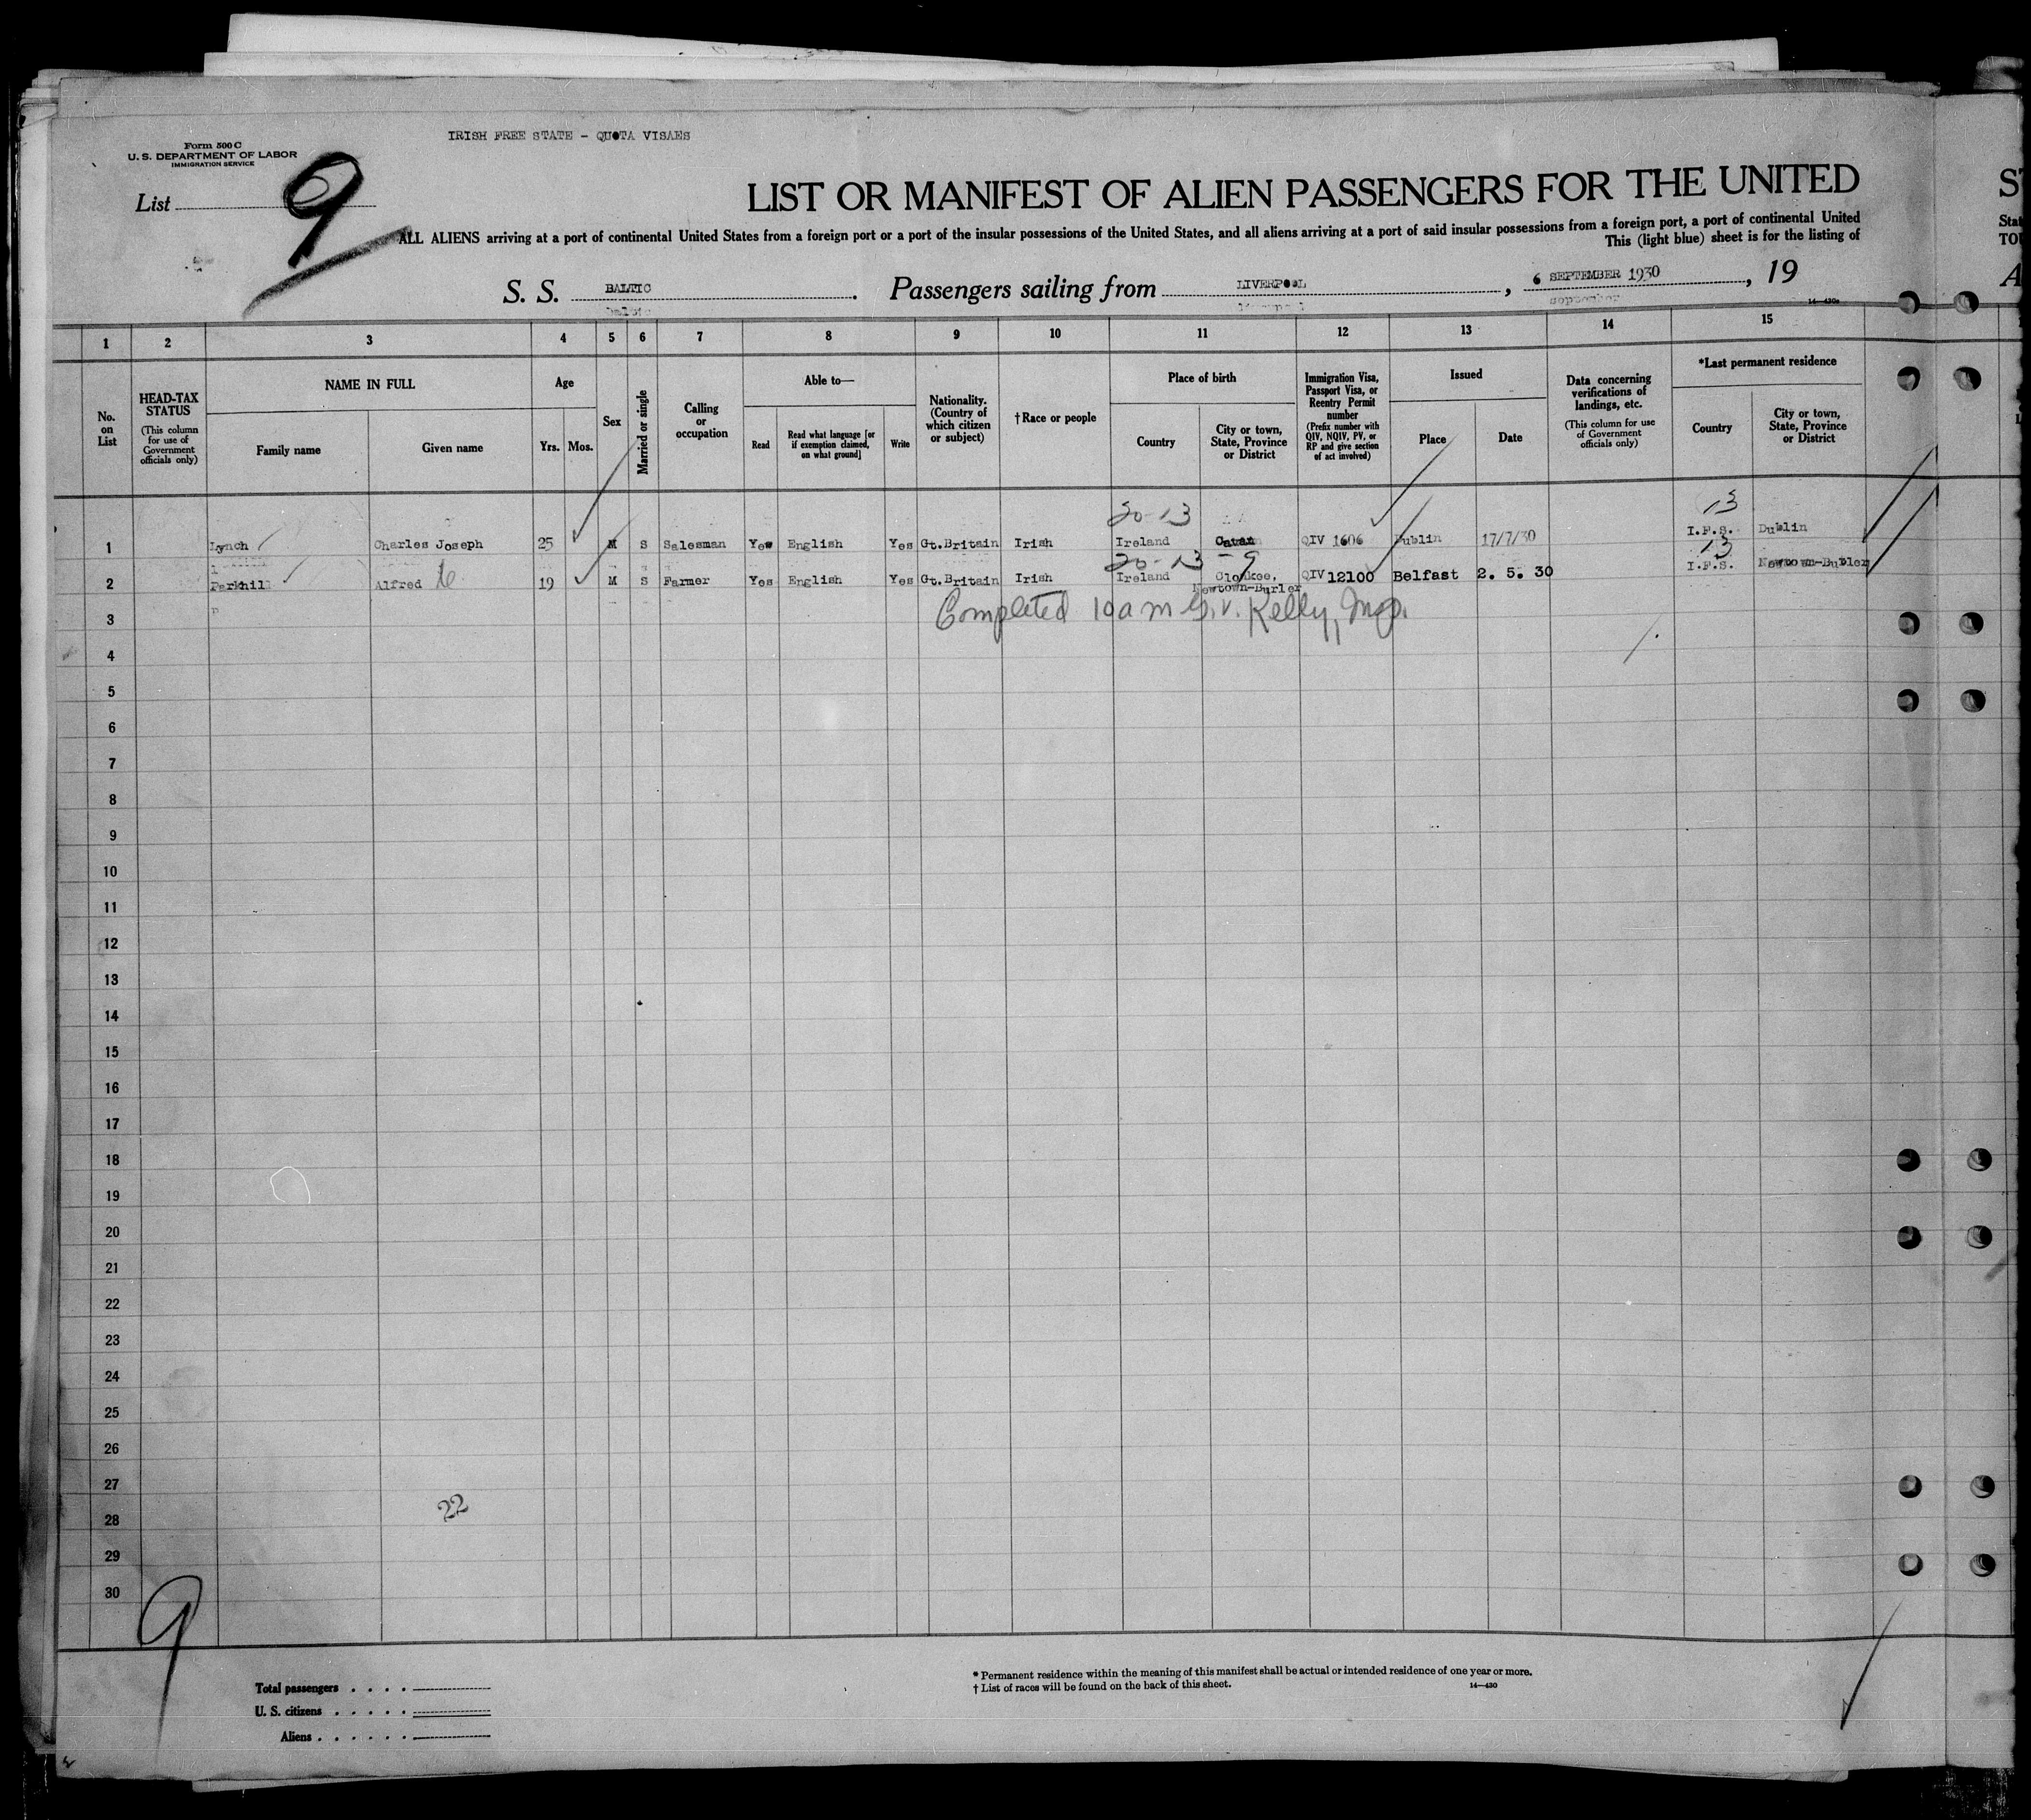 IRISH FREE STATE - QUOTA VISAES
Form 500 C
U. S. DEPARTMENT OF LABOR
IMMIGRATION SERVICE
List 9
LIST OR MANIFEST OF ALIEN PASSENGERS FOR THE UNITED
ALL ALIENS arriving at a port of continental United States from a foreign port or a port of the insular possessions of the United States, and all aliens arriving at a port of said insular possessions from a foreign port, a port of continental United
This (light blue) sheet is for the listing of
S. S. BALTIC. Passengers sailing from LIVERPOOL, 6 SEPTEMBER 1930, 19
14—430a
1 2 3 4 5 6 7 8 9 10 11 12 13 14 15
No. on List
HEAD-TAX STATUS (This column for use of Government officials only)
NAME IN FULL
Family name
Given name
Age
Yrs. Mos.
Sex
Married or single
Calling or occupation
Able to—
Read
Read what language [or if exemption claimed, on what ground]
Write
Nationality. (Country of which citizen or subject)
†Race or people
Place of birth
Country
City or town, State, Province or District
Immigration Visa, Passport Visa, or Reentry Permit number (Prefix number with QIV, NQIV, PV, or RP and give section of act involved)
Issued
Place
Date
Data concerning verifications of landings, etc. (This column for use of Government officials only)
*Last permanent residence
Country
City or town, State, Province or District
20-13 13
1 Lynch Charles Joseph 25 M S Salesman Yes English Yes Gt.Britain Irish Ireland Cavan QIV 1606 Dublin 17/7/30 I.F.S. Dublin
20-13 - 9 13
2 Parkhill Alfred 19 M S Farmer Yes English Yes Gt.Britain Irish Ireland Clonkee, Newtown-Burler QIV 12100 Belfast 2. 5. 30 I.F.S. Newtown-Butler
Completed 10 a m G. V. Kelly, Insp.
3
4
5
6
7
8
9
10
11
12
13
14
15
16
17
18
19
20
21
22
23
24
25
26
27
22
28
29
30
9
Total passengers . . . .
U. S. citizens . . . . .
Aliens . . . . . .
* Permanent residence within the meaning of this manifest shall be actual or intended residence of one year or more.
† List of races will be found on the back of this sheet.
14—430